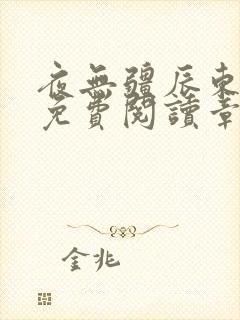 夜無疆辰東
免費閱讀章
金兆